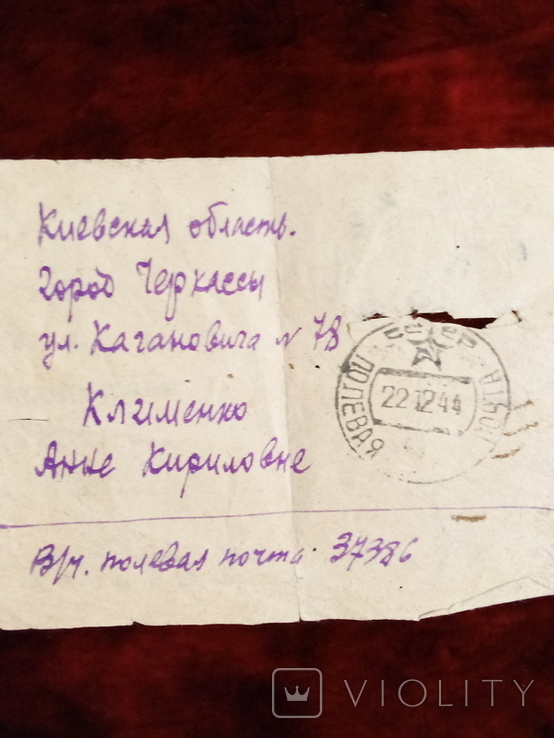 Киевская область.
город Черкассы
ул. Кагановича № 78
Клименко
Анне Кириловне
В/ч. полевая почта 37386
СССР
ПОЛЕВАЯ ПОЧТА
22 12 44
VIOLITY